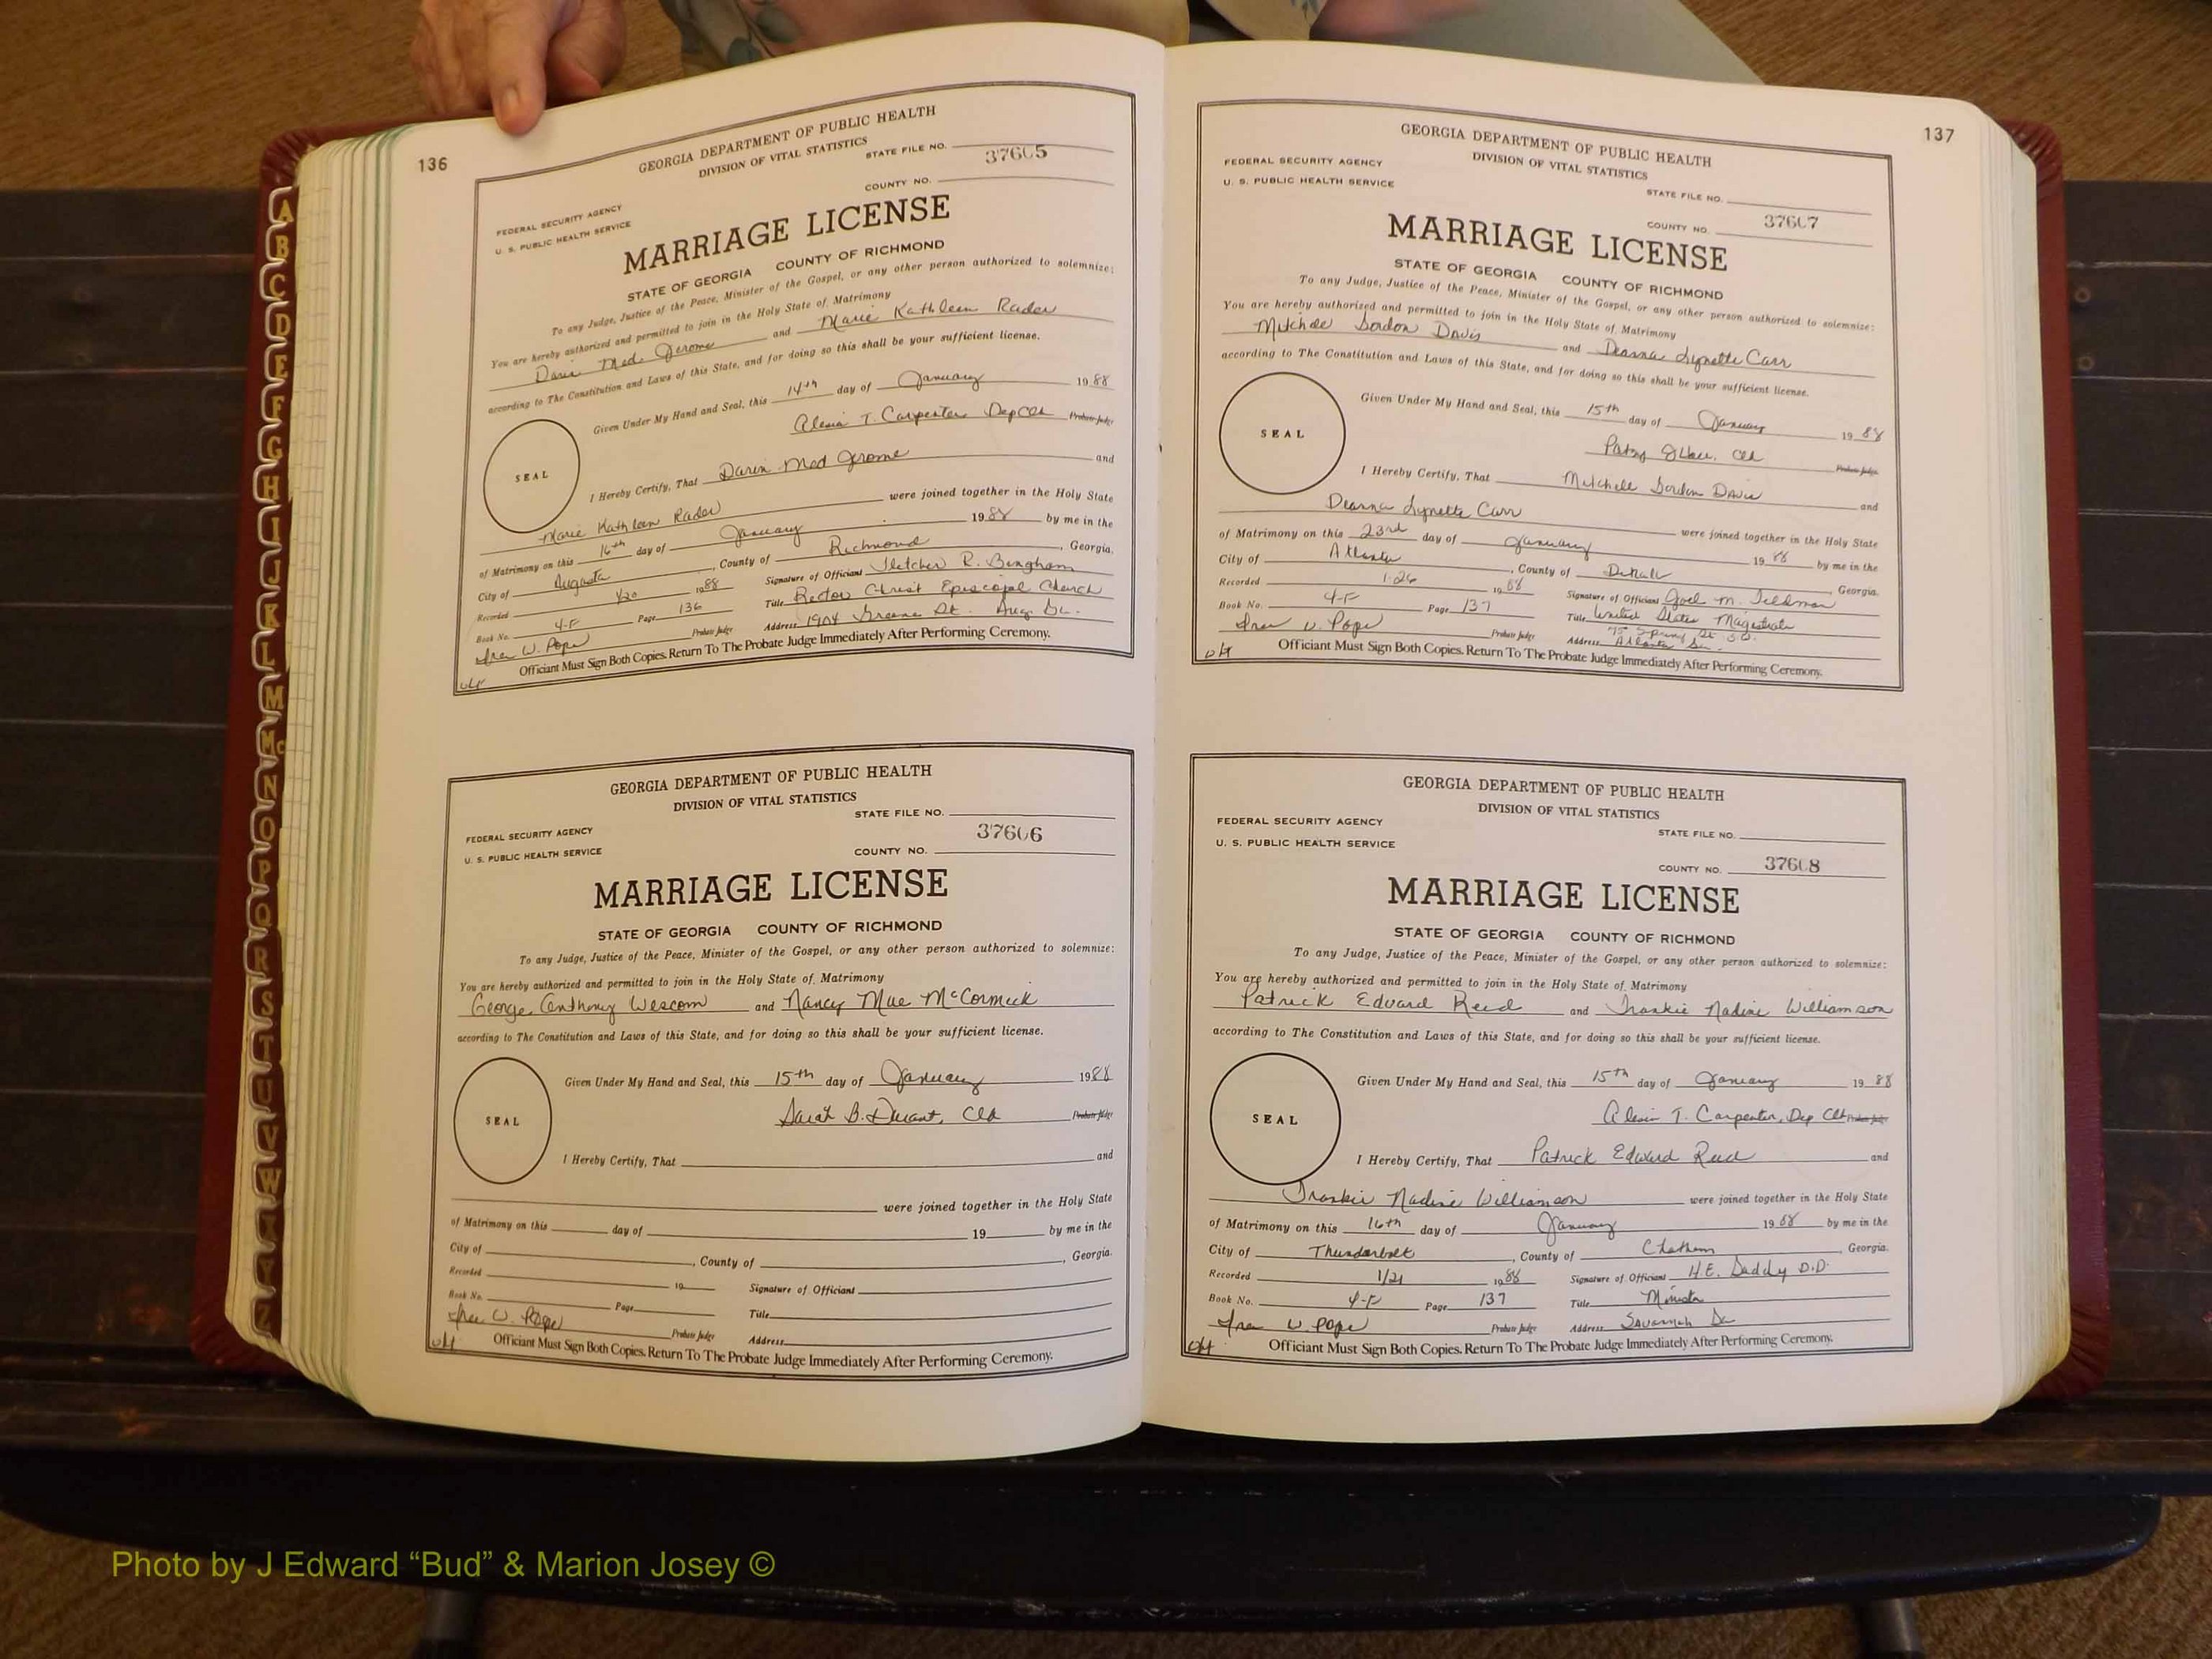 136
GEORGIA DEPARTMENT OF PUBLIC HEALTH
DIVISION OF VITAL STATISTICS
STATE FILE NO. 37605
COUNTY NO.
FEDERAL SECURITY AGENCY
U. S. PUBLIC HEALTH SERVICE
MARRIAGE LICENSE
STATE OF GEORGIA COUNTY OF RICHMOND
To any Judge, Justice of the Peace, Minister of the Gospel, or any other person authorized to solemnize:
You are hereby authorized and permitted to join in the Holy State of Matrimony
Darin Med Jerome and Marie Kathleen Rader
according to The Constitution and Laws of this State, and for doing so this shall be your sufficient license.
Given Under My Hand and Seal, this 14th day of January 1988
Alesia T. Carpenter Dep Clk Probate Judge
SEAL
I Hereby Certify, That Darin Med Jerome and
Marie Kathleen Rader were joined together in the Holy State
of Matrimony on this 16th day of January 1988 by me in the
City of Augusta, County of Richmond, Georgia.
Recorded 1/20 1988 Signature of Officiant Fletcher R. Bingham
Book No. 4-F Page 136 Title Rector Christ Episcopal Church
W. Pope Probate Judge Address 1904 Greene St. Aug. Ga.
Officiant Must Sign Both Copies. Return To The Probate Judge Immediately After Performing Ceremony.
GEORGIA DEPARTMENT OF PUBLIC HEALTH
DIVISION OF VITAL STATISTICS
STATE FILE NO.
FEDERAL SECURITY AGENCY
37606
U. S. PUBLIC HEALTH SERVICE
COUNTY NO.
MARRIAGE LICENSE
STATE OF GEORGIA COUNTY OF RICHMOND
To any Judge, Justice of the Peace, Minister of the Gospel, or any other person authorized to solemnize:
You are hereby authorized and permitted to join in the Holy State of Matrimony
George Anthony Wescom and Nancy Mae McCormick
according to The Constitution and Laws of this State, and for doing so this shall be your sufficient license.
Given Under My Hand and Seal, this 15th day of January 1988
Sarah B. Clk Probate Judge
SEAL
I Hereby Certify, That and
were joined together in the Holy State
of Matrimony on this day of 19 by me in the
City of , County of , Georgia.
Recorded 19 Signature of Officiant
Book No. Page Title
W. Pope Probate Judge Address
Officiant Must Sign Both Copies. Return To The Probate Judge Immediately After Performing Ceremony.
137
GEORGIA DEPARTMENT OF PUBLIC HEALTH
DIVISION OF VITAL STATISTICS
FEDERAL SECURITY AGENCY
U. S. PUBLIC HEALTH SERVICE
STATE FILE NO.
COUNTY NO. 37607
MARRIAGE LICENSE
STATE OF GEORGIA COUNTY OF RICHMOND
To any Judge, Justice of the Peace, Minister of the Gospel, or any other person authorized to solemnize:
You are hereby authorized and permitted to join in the Holy State of Matrimony
Mitchell Gordon Davis and Deanna Lynette Carr
according to The Constitution and Laws of this State, and for doing so this shall be your sufficient license.
Given Under My Hand and Seal, this 15th day of January 1988
Patsy Clk Probate Judge
SEAL
I Hereby Certify, That Mitchell Gordon Davis and
Deanna Lynette Carr were joined together in the Holy State
of Matrimony on this 23rd day of January 1988 by me in the
City of Atlanta, County of DeKalb Georgia.
Recorded 1-26 1988 Signature of Officiant Joel M. Feldman
Book No. 4-F Page 137 Title United States Magistrate
W. Pope Probate Judge Address 75 Spring St. S.W. Atlanta Ga.
Officiant Must Sign Both Copies. Return To The Probate Judge Immediately After Performing Ceremony.
GEORGIA DEPARTMENT OF PUBLIC HEALTH
DIVISION OF VITAL STATISTICS
FEDERAL SECURITY AGENCY
STATE FILE NO.
U. S. PUBLIC HEALTH SERVICE
COUNTY NO. 37608
MARRIAGE LICENSE
STATE OF GEORGIA COUNTY OF RICHMOND
To any Judge, Justice of the Peace, Minister of the Gospel, or any other person authorized to solemnize:
You are hereby authorized and permitted to join in the Holy State of Matrimony
Patrick Edward Reed and Frankie Nadine Williamson
according to The Constitution and Laws of this State, and for doing so this shall be your sufficient license.
Given Under My Hand and Seal, this 15th day of January 1988
Alesia T. Carpenter, Dep Clk Probate Judge
SEAL
I Hereby Certify, That Patrick Edward Reed and
Frankie Nadine Williamson were joined together in the Holy State
of Matrimony on this 16th day of January 1988 by me in the
City of Thunderbolt, County of Chatham, Georgia.
Recorded 1/21 1988 Signature of Officiant H.E. Gaddy D.D.
Book No. 4-F Page 137 Title Minister
W. Pope Probate Judge Address Savannah Ga
Officiant Must Sign Both Copies. Return To The Probate Judge Immediately After Performing Ceremony.
A
B
C
D
E
F
G
H
I
J
K
L
M
Mc
N
O
P
Q
R
S
T
U
V
W
X
Y
Z
Photo by J Edward “Bud” & Marion Josey ©